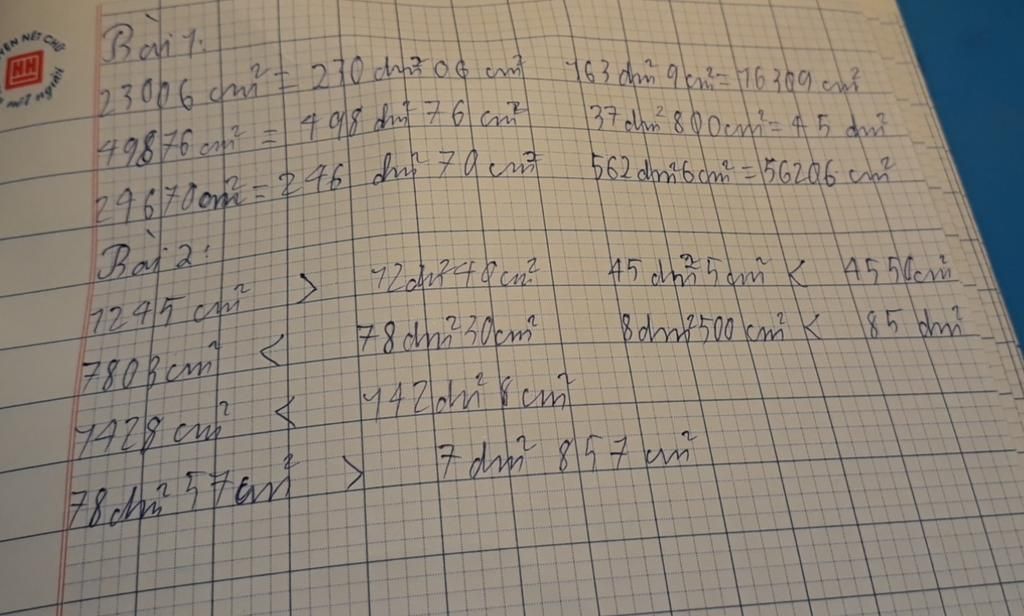 Bài 1:
23006 cm² = 230 dm² 06 cm² 163 dm² 9 cm² = 16309 cm²
49876 cm² = 498 dm² 76 cm² 37 dm² 800 cm² = 45 dm²
24670 cm² = 246 dm² 70 cm² 562 dm² 6 cm² = 56206 cm²
Bài 2:
1245 cm² > 12 dm² 40 cm² 45 dm² 5 cm² < 4550 cm²
7803 cm² < 78 dm² 30 cm² 8 dm² 500 cm² < 85 dm²
1428 cm² < 142 dm² 8 cm²
78 dm² 57 cm² > 7 dm² 857 cm²
NÉT CHỮ
NH